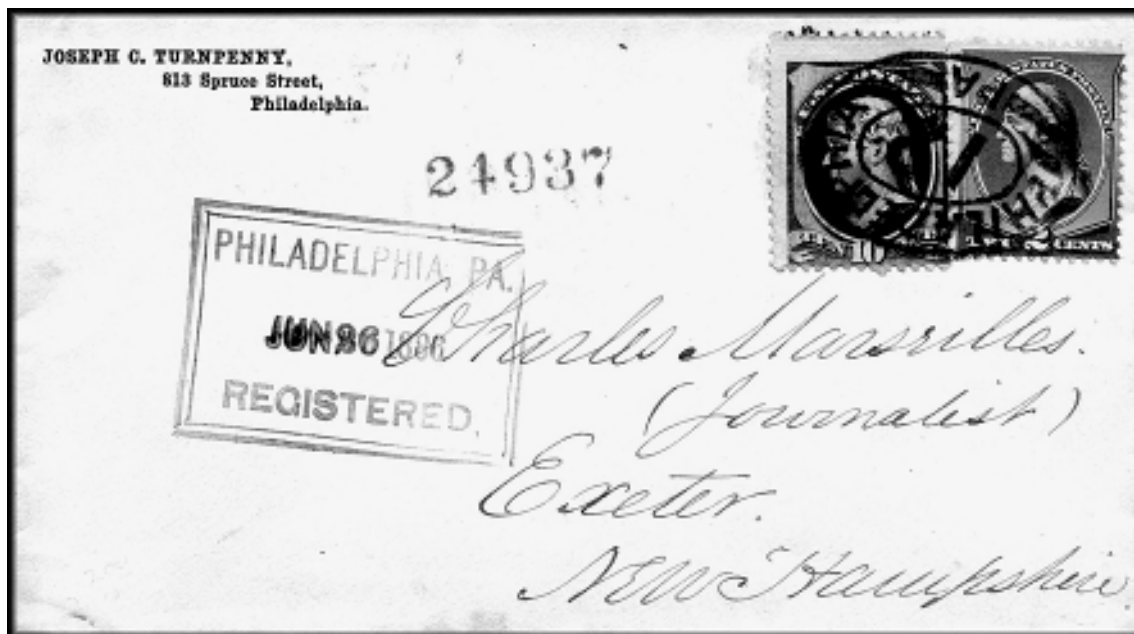 JOSEPH C. TURNPENNY,
813 Spruce Street,
Philadelphia.
24937
PHILADELPHIA, PA.
JUN 26 1886
REGISTERED.
PHILADELPHIA
TEN 10
TWO 2 CENTS
Charles Marseilles.
(Journalist)
Exeter.
New Hampshire